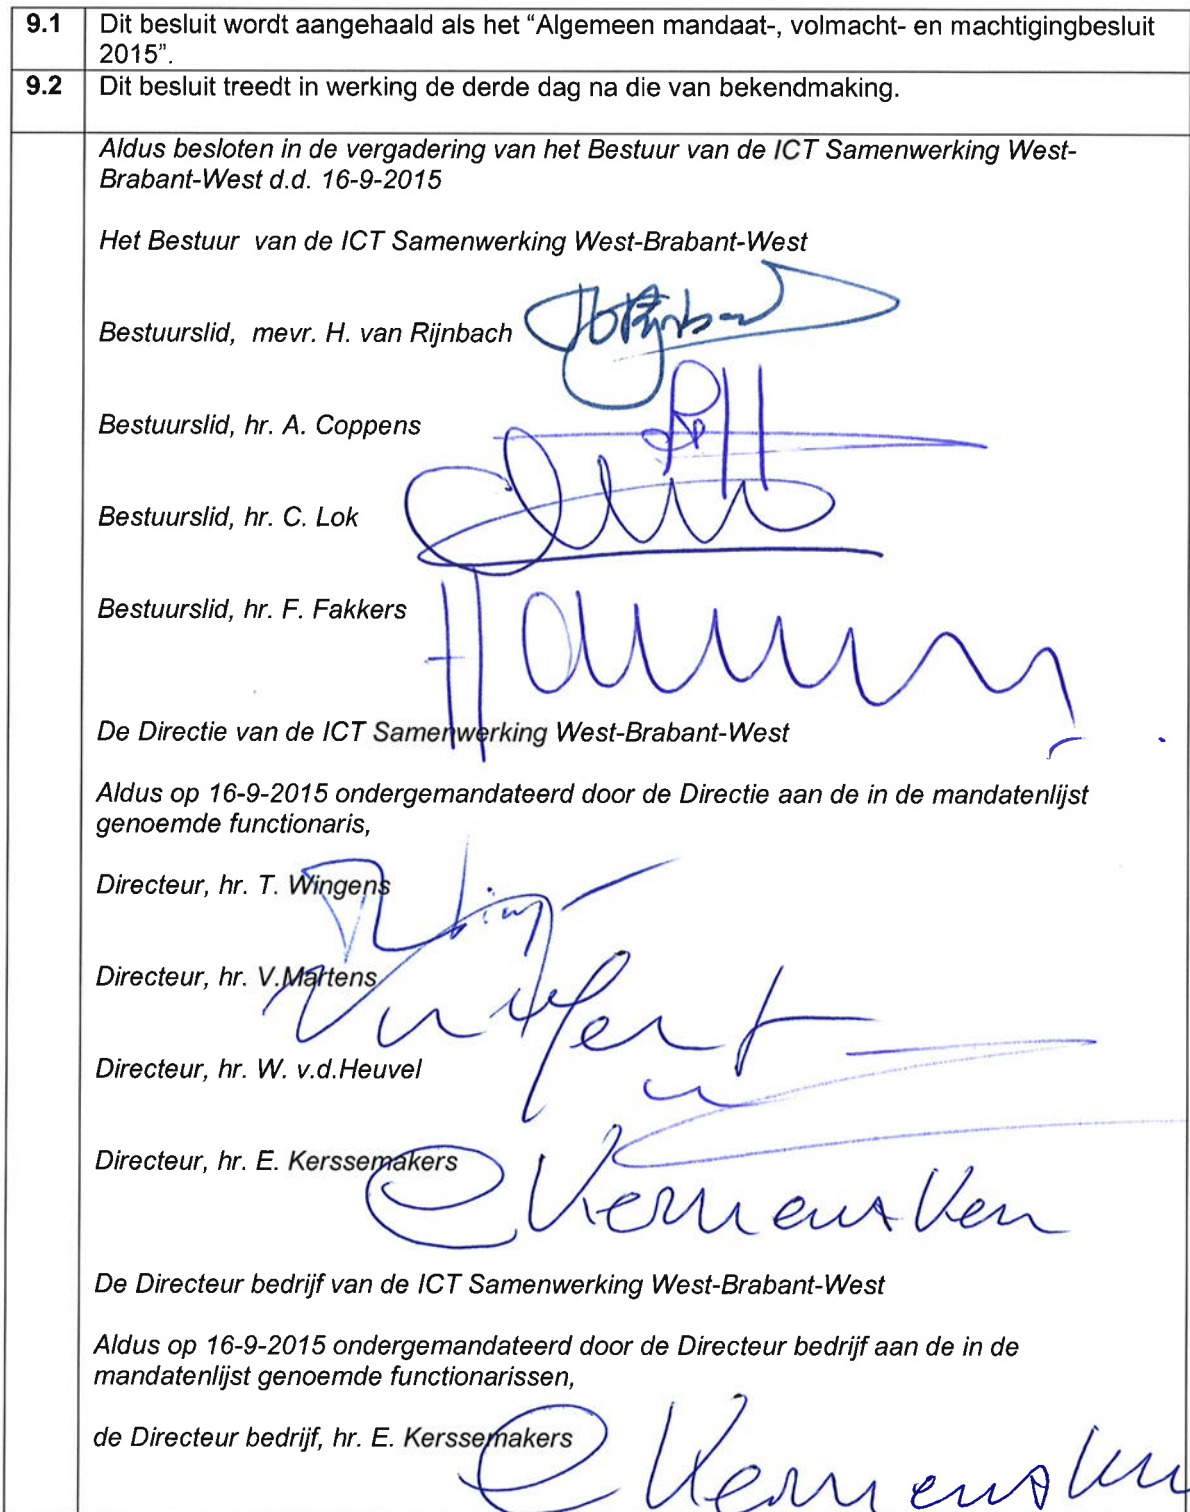 9.1 Dit besluit wordt aangehaald als het “Algemeen mandaat-, volmacht- en machtigingbesluit
2015”.
9.2 Dit besluit treedt in werking de derde dag na die van bekendmaking.
Aldus besloten in de vergadering van het Bestuur van de ICT Samenwerking West-
Brabant-West d.d. 16-9-2015
Het Bestuur van de ICT Samenwerking West-Brabant-West
Bestuurslid, mevr. H. van Rijnbach
Bestuurslid, hr. A. Coppens
Bestuurslid, hr. C. Lok
Bestuurslid, hr. F. Fakkers
De Directie van de ICT Samenwerking West-Brabant-West
Aldus op 16-9-2015 ondergemandateerd door de Directie aan de in de mandatenlijst
genoemde functionaris,
Directeur, hr. T. Wingens
Directeur, hr. V.Martens
Directeur, hr. W. v.d.Heuvel
Directeur, hr. E. Kerssemakers
De Directeur bedrijf van de ICT Samenwerking West-Brabant-West
Aldus op 16-9-2015 ondergemandateerd door de Directeur bedrijf aan de in de
mandatenlijst genoemde functionarissen,
de Directeur bedrijf, hr. E. Kerssemakers